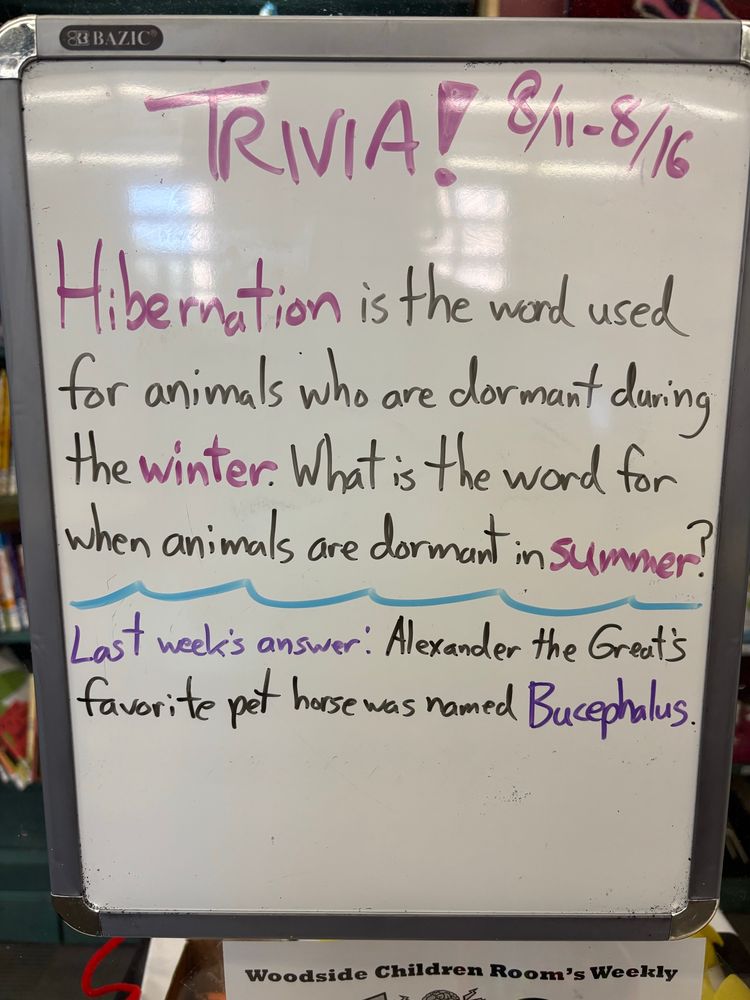 BAZIC
TRIVIA! 8/11-8/16
Hibernation is the word used
for animals who are dormant during
the winter. What is the word for
when animals are dormant in summer?
Last week's answer: Alexander the Great's
favorite pet horse was named Bucephalus.
Woodside Children Room's Weekly